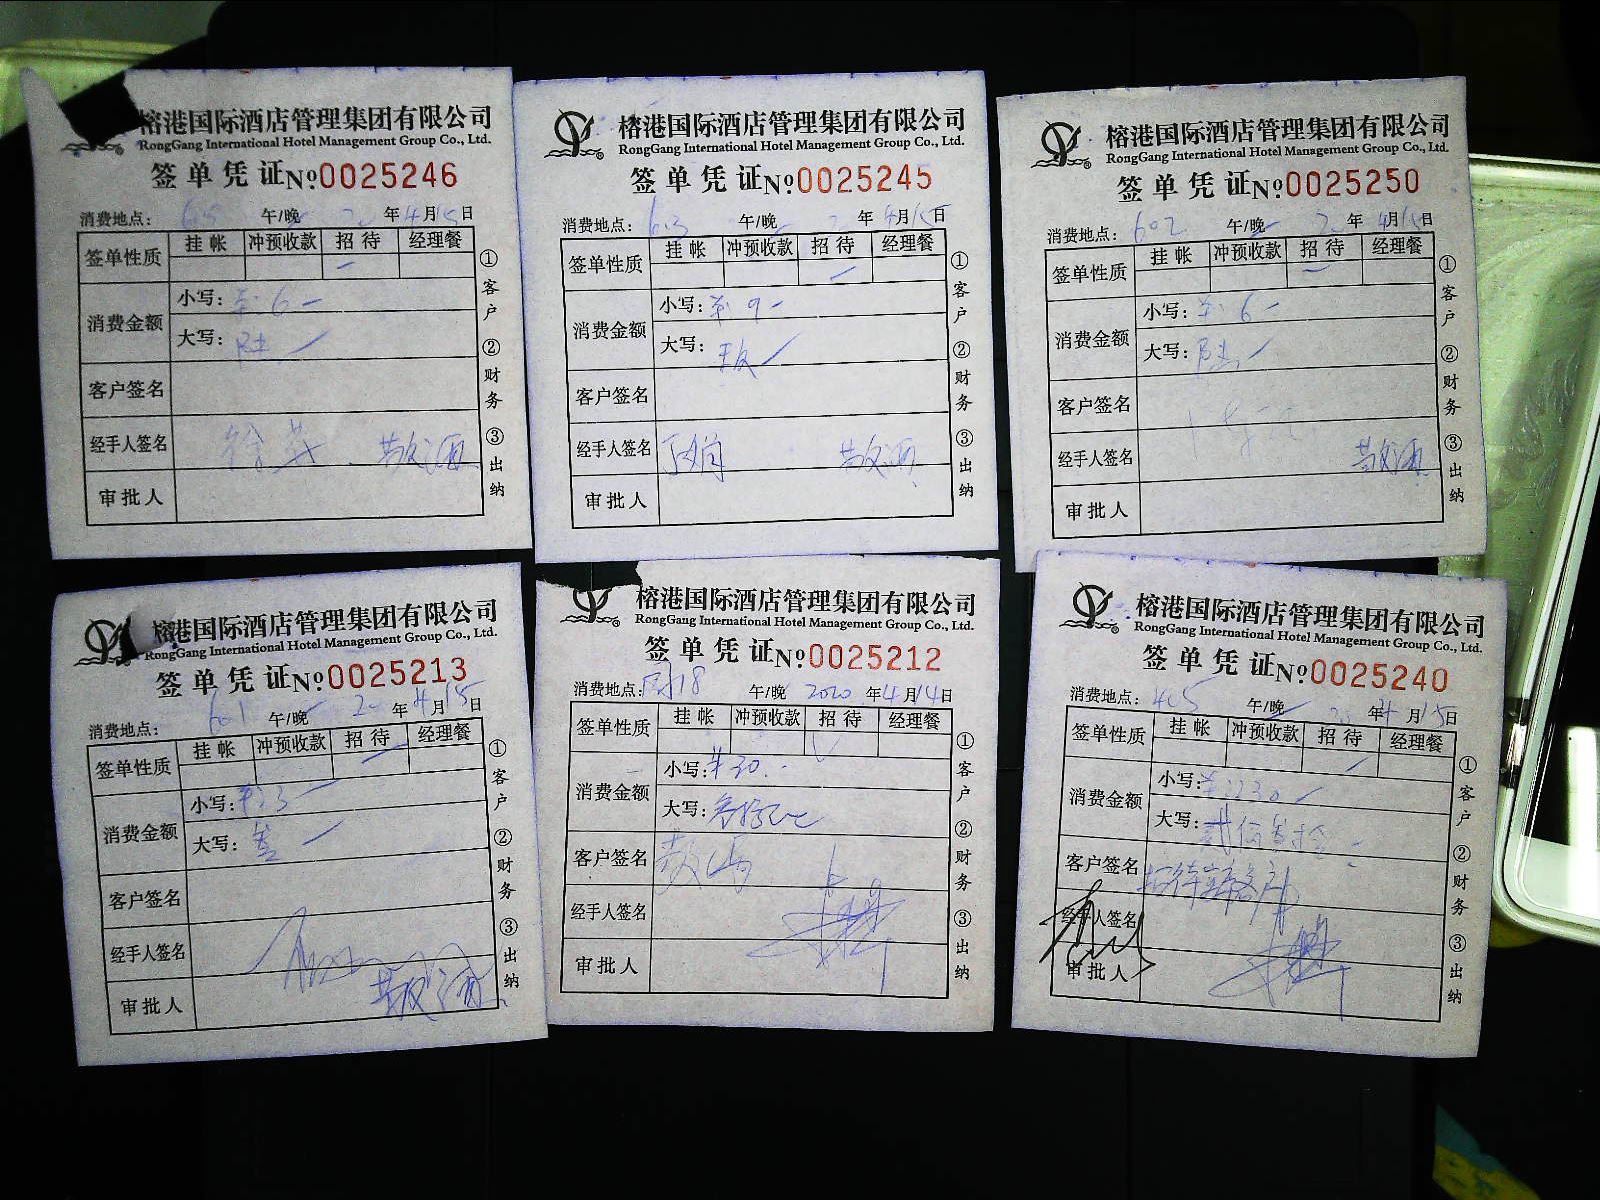 榕港国际酒店管理集团有限公司
RongGang International Hotel Management Group Co., Ltd.
签单凭证№0025246
消费地点: 午/晚 年4月15日
签单性质 挂帐 冲预收款 招待 经理餐
消费金额 小写: 6-
大写: 陆
客户签名
经手人签名 敬酒
审批人
①客户 ②财务 ③出纳
榕港国际酒店管理集团有限公司
RongGang International Hotel Management Group Co., Ltd.
签单凭证№0025245
消费地点: 603 午/晚 年4月15日
签单性质 挂帐 冲预收款 招待 经理餐
消费金额 小写: 9-
大写: 玖
客户签名
经手人签名 敬酒
审批人
①客户 ②财务 ③出纳
榕港国际酒店管理集团有限公司
RongGang International Hotel Management Group Co., Ltd.
签单凭证№0025250
消费地点: 602 午/晚 年4月15日
签单性质 挂帐 冲预收款 招待 经理餐
消费金额 小写: 6-
大写: 陆
客户签名
经手人签名 敬酒
审批人
①客户 ②财务 ③出纳
榕港国际酒店管理集团有限公司
RongGang International Hotel Management Group Co., Ltd.
签单凭证№0025213
消费地点: 601 午/晚 20 年4月15日
签单性质 挂帐 冲预收款 招待 经理餐
消费金额 小写:
大写:
客户签名
经手人签名
审批人 敬酒
①客户 ②财务 ③出纳
榕港国际酒店管理集团有限公司
RongGang International Hotel Management Group Co., Ltd.
签单凭证№0025212
消费地点: 18 午/晚 2020年4月14日
签单性质 挂帐 冲预收款 招待 经理餐
消费金额 小写: 30.-
大写: 叁拾元
客户签名
经手人签名
审批人
①客户 ②财务 ③出纳
榕港国际酒店管理集团有限公司
RongGang International Hotel Management Group Co., Ltd.
签单凭证№0025240
消费地点: 405 午/晚 20 年4月15日
签单性质 挂帐 冲预收款 招待 经理餐
消费金额 小写: 230
大写: 贰佰叁拾
客户签名 招待 客户
经手人签名
审批人
①客户 ②财务 ③出纳